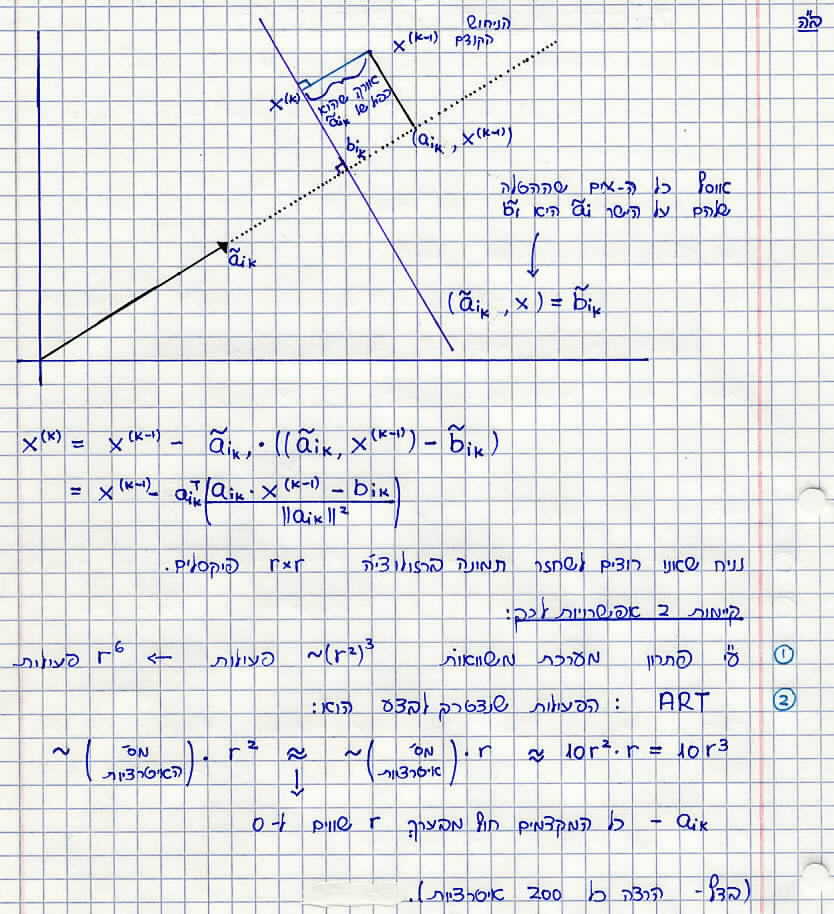 בס"ד
הניחוש
הקודם
x^(k-1)
x^(k)
אורך שהוא
כפול של
ã_ik
b_ik
(a_ik, x^(k-1))
ã_ik
אוסף כל ה-x-ים שההטלה
שלהם על הישר ã_i היא b̃_i
(ã_ik, x) = b̃_ik
x^(k) = x^(k-1) - ã_ik · ((ã_ik, x^(k-1)) - b̃_ik)
= x^(k-1) - a_ik^T (a_ik · x^(k-1) - b_ik / ||a_ik||²)
נניח שאנו רוצים לשחזר תמונה ברזולוציה r×r פיקסלים.
קיימות 2 אפשרויות לכך:
① ע"י פתרון מערכת משוואות ~(r²)³ פעולות ← r⁶ פעולות
② ART : הפעולות שנצטרך לבצע הוא:
~ (מס' האיטרציות) · r² ≈ ~ (מס' איטרציות) · r ≈ 10r² · r = 10r³
a_ik - כל המקדמים חוץ מבערך r שווים ל-0
(בדף - הרצה כל 200 איטרציות).